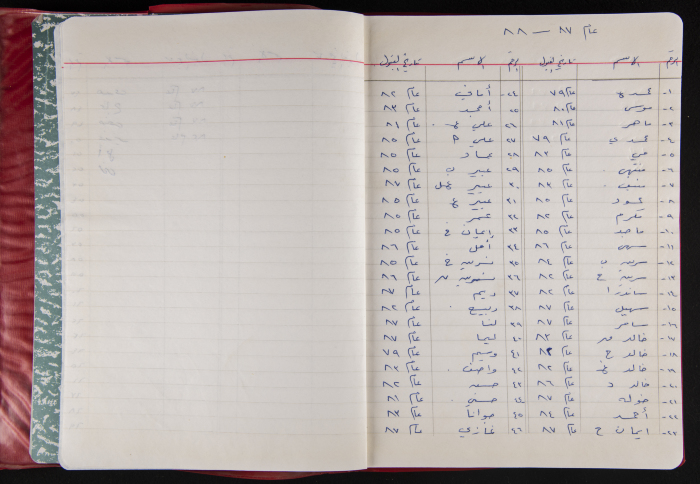 عام ٨٧ — ٨٨
الرقم الاسم تاريخ القبول الرقم الاسم تاريخ القبول
١- عام ٧٩ ٢٤- أماني عام ٨٢
٢- موسى عام ٨٠ ٢٥ أحمد عام ٨٣
٣- ماهر عام ٨١ ٢٦ علي عام ٨٤
٤- محمد ي عام ٧٩ ٢٧ علي م عام ٨٥
٥- مي عام ٨٣ ٢٨ عماد عام ٨٥
٦- منتهى عام ٨٥ ٢٩ عبير ب عام ٨٥
٧- عام ٨٣ ٣٠ عبير عام ٨٧
٨- عام ٨٥ ٣١ عبير ع عام ٨٥
٩- مكرم عام ٨٢ ٣٢ عمر عام ٨٥
١٠- ماجد عام ٨٥ ٣٣ إيمان خ عام ٨٥
١١- سهى عام ٨٦ ٣٤ أمل عام ٨٦
١٢- سرين ب عام ٨٤ ٣٥ نسرين خ عام ٨٥
١٣- سرين ع عام ٨٢ ٣٦ نسرين عام ٨٦
١٤- ساندرا عام ٨٢ ٣٧ ريم عام ٨٧
١٥- سهيل عام ٨٧ ٣٨ ربيع عام ٨٢
١٦- سامر عام ٨٧ ٣٩ لينا عام ٨٧
١٧- خالد عام ٨٣ ٤٠ لينا عام ٨٧
١٨- خالد ع عام ٤١ وسيم عام ٧٩
١٩- خالد عام ٨٢ ٤٢ واصف عام ٨٣
٢٠- خالد د عام ٨٦ ٤٣ عام ٨٢
٢١- خولة عام ٨٧ ٤٤ حسني عام ٨١
٢٢- أحمد عام ٨٤ ٤٥ جوانا عام ٨٣
٢٣- ايمان ح عام ٨٧ ٤٦ غازي عام ٨٧